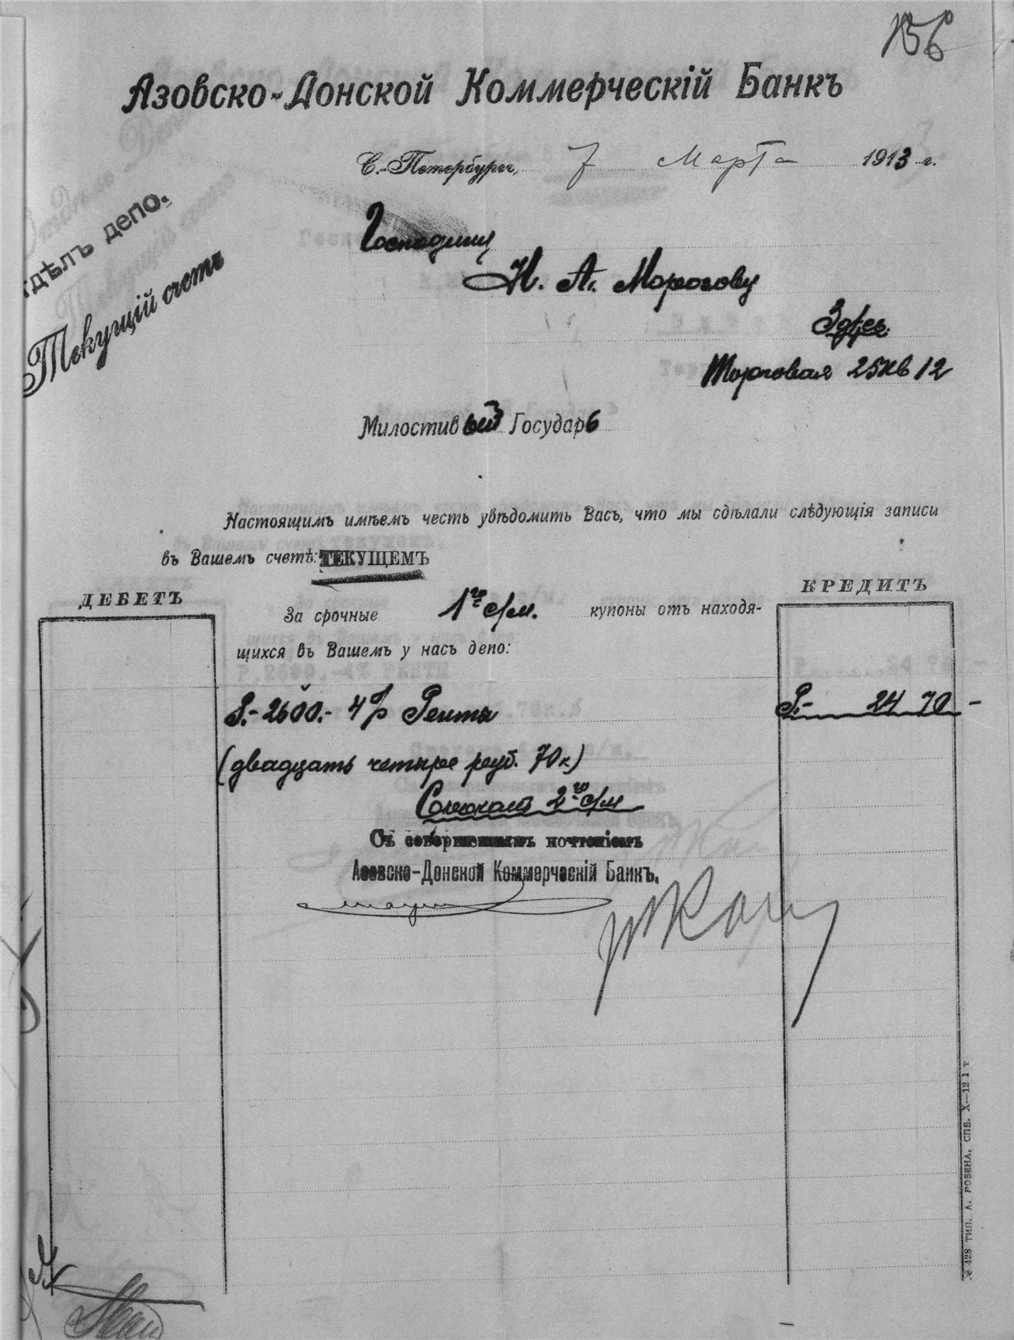 156
Азовско-Донской Коммерческій Банкъ
С.-Петербургъ, 7 Марта 1913 г.
отдѣлъ депо.
Текущій счетъ
Господину
Н. А. Морогову
Здѣсь
Торговая 25 кв 12
Милостивый Государь
Настоящимъ имѣемъ честь увѣдомить Васъ, что мы сдѣлали слѣдующія записи
въ Вашемъ счетѣ: ТЕКУЩЕМЪ
ДЕБЕТЪ
КРЕДИТЪ
За срочные 1го с/м. купоны отъ находя-
щихся въ Вашемъ у насъ депо:
Р.- 2600.- 4% Рента Р.- 24 70 -
(двадцать четыре руб. 70 к)
2го с/м
Съ совершеннымъ почтеніемъ
Азовско-Донской Коммерческій Банкъ.
№ 428 ТИП. А. РОЗЕНА, СПБ. X—12 1 т